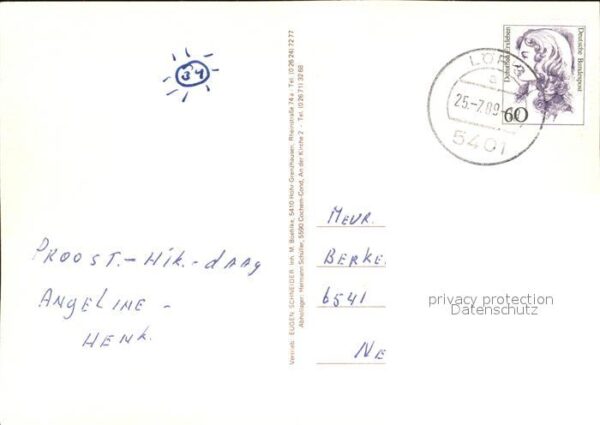 34
PROOST.- Hik.- daag
ANGELINE -
HENK.
Vertrieb: EUGEN SCHNEIDER Inh. M. Boehlke, 5410 Höhr Grenzhausen, Rheinstraße 74 a · Tel. (0 26 24) 72 77
Abholager: Hermann Schüller, 5590 Cochem-Cond, An der Kirche 2 · Tel. (0 26 71) 32 68
Deutsche Bundespost
60
a
25.-7.89
5401
MEVR.
BERKE
6541
NE
privacy protection
Datenschutz